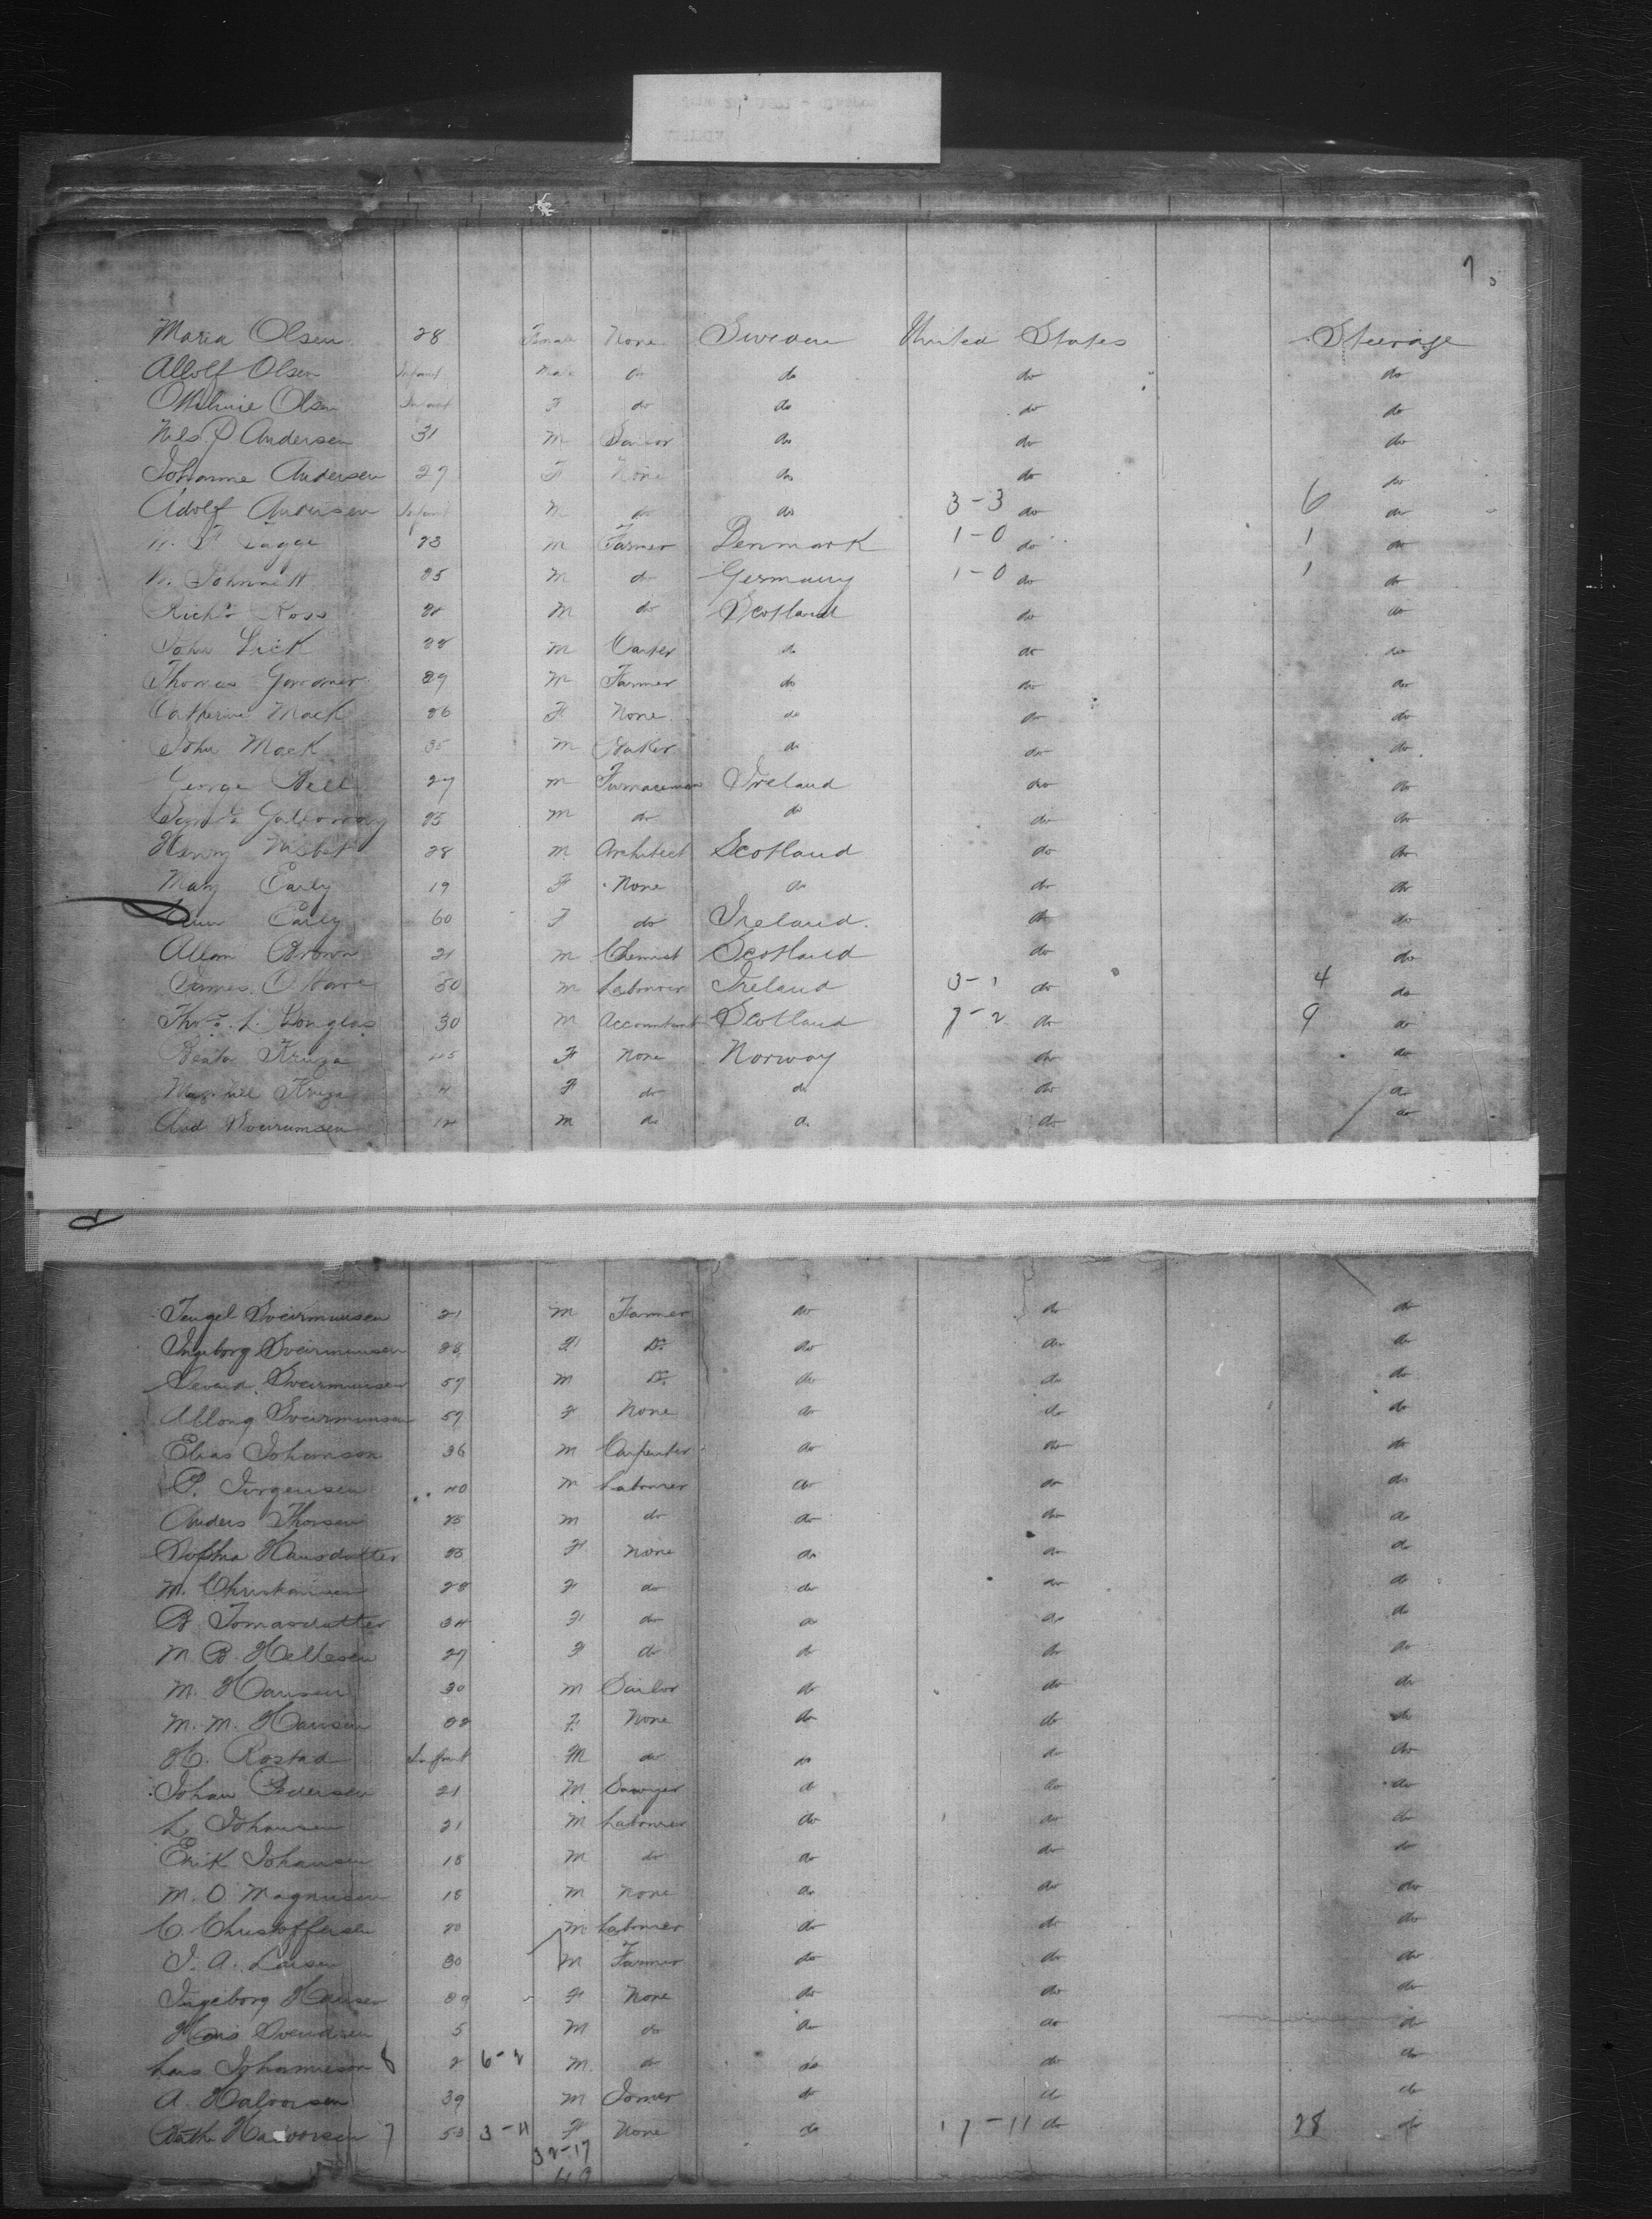 7
Maria Olsen 28 Female None Sweden United States Steerage
Adolf Olsen Infant Male do do do do
Olsen Infant F do do do do
Nels P Andersen 31 M Sailor do do do
Johanne Andersen 27 F None do do do
Adolf Andersen Infant M do do 3-3 do 6 do
23 M Farmer Denmark 1-0 do 1 do
25 M do Germany 1-0 do 1 do
Richd Ross M do Scotland do do
John Lick 28 M Carter do do do
Thomas 29 M Farmer do do do
Catherine Mack 26 F None do do do
John Mack 35 M Baker do do do
George Bell 27 M Furnaceman Ireland do do
Galloway 23 M do do do do
Henry Nisbet 28 M Architect Scotland do do
Mary Early 19 F None do do do
Ann Early 60 F do Ireland do do
Allan Brown 21 M Chemist Scotland do do
James O'Hare 30 M Labourer Ireland 3-1 do 4 do
Thos. L. Douglas 30 M Accountant Scotland 7-2 do 9 do
Beata Kruga 45 F None Norway do do
Kruga 4 F do do do do
12 M do do do do
21 M Farmer do do do
Ingeborg F Do do do do
57 M Do do do do
57 F None do do do
Elias Johanson 36 M Carpenter do do do
P. Jurgensen 40 M Labourer do do do
Anders Thorsen 25 M do do do do
Sophia Hansdatter F None do do do
M. Christiansen 28 F do do do do
B. Tomasdatter 34 F do do do do
M. B. Hellesen 27 F do do do do
M. Hansen 30 M Sailor do do do
M. M. Hansen F None do do do
H. Rostad Infant M do do do do
Johan Pedersen 21 M Sawyer do do do
L. Johansen 21 M Labourer do do do
Erik Johansen 18 M do do do do
M. O. Magnusen 18 M None do do do
C. Christoffersen 20 M Labourer do do do
J. A. Larsen 30 M Farmer do do do
Ingeborg Hansen F None do do do
Hans Svendsen 5 M do do do do
Lars Johannesen 8 2 6-2 M do do do do
A. Halvorsen 39 M Joiner do do do
Halvorsen 7 53 3-4 F None do 17-11 do 28 do
32-17
49